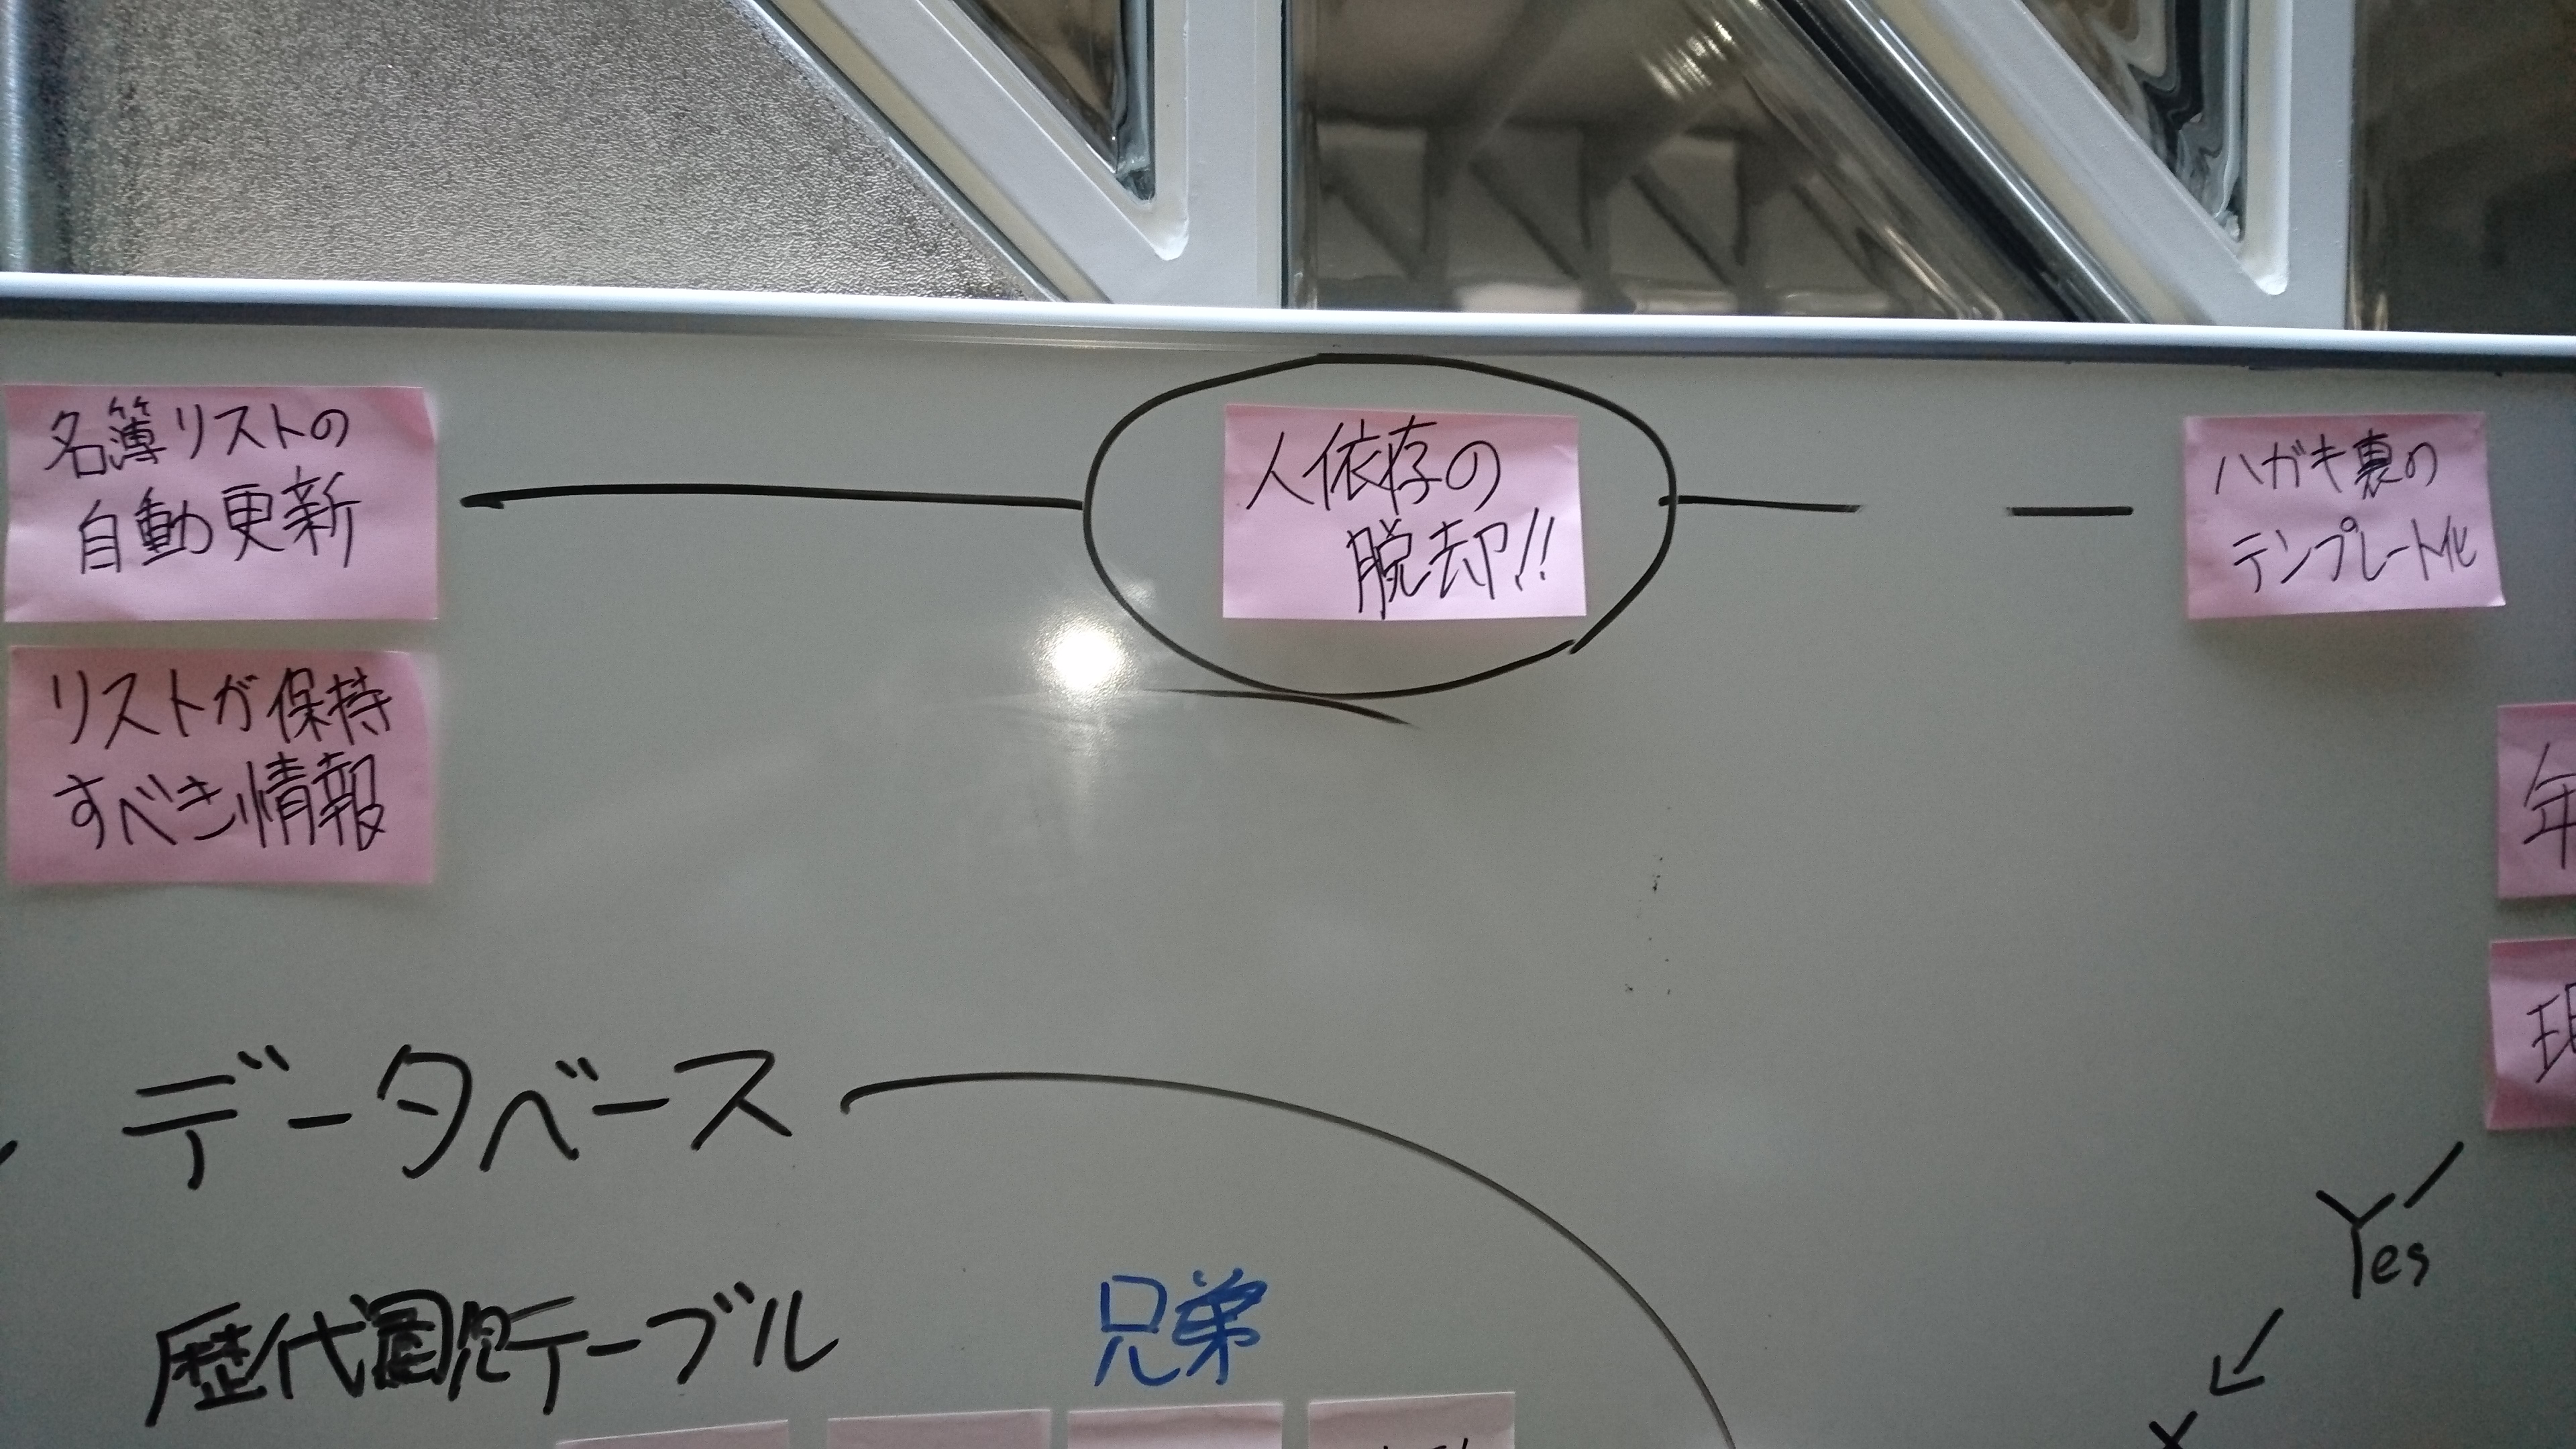 名簿リストの
自動更新
人依存の
脱却!!
ハガキ裏の
テンプレート化
リストが保持
すべき情報
年
現
データベース
Yes
歴代園児テーブル
兄弟